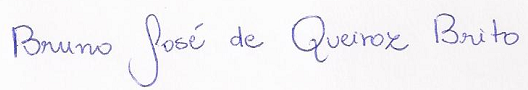 Bruno José de Queiroz Brito